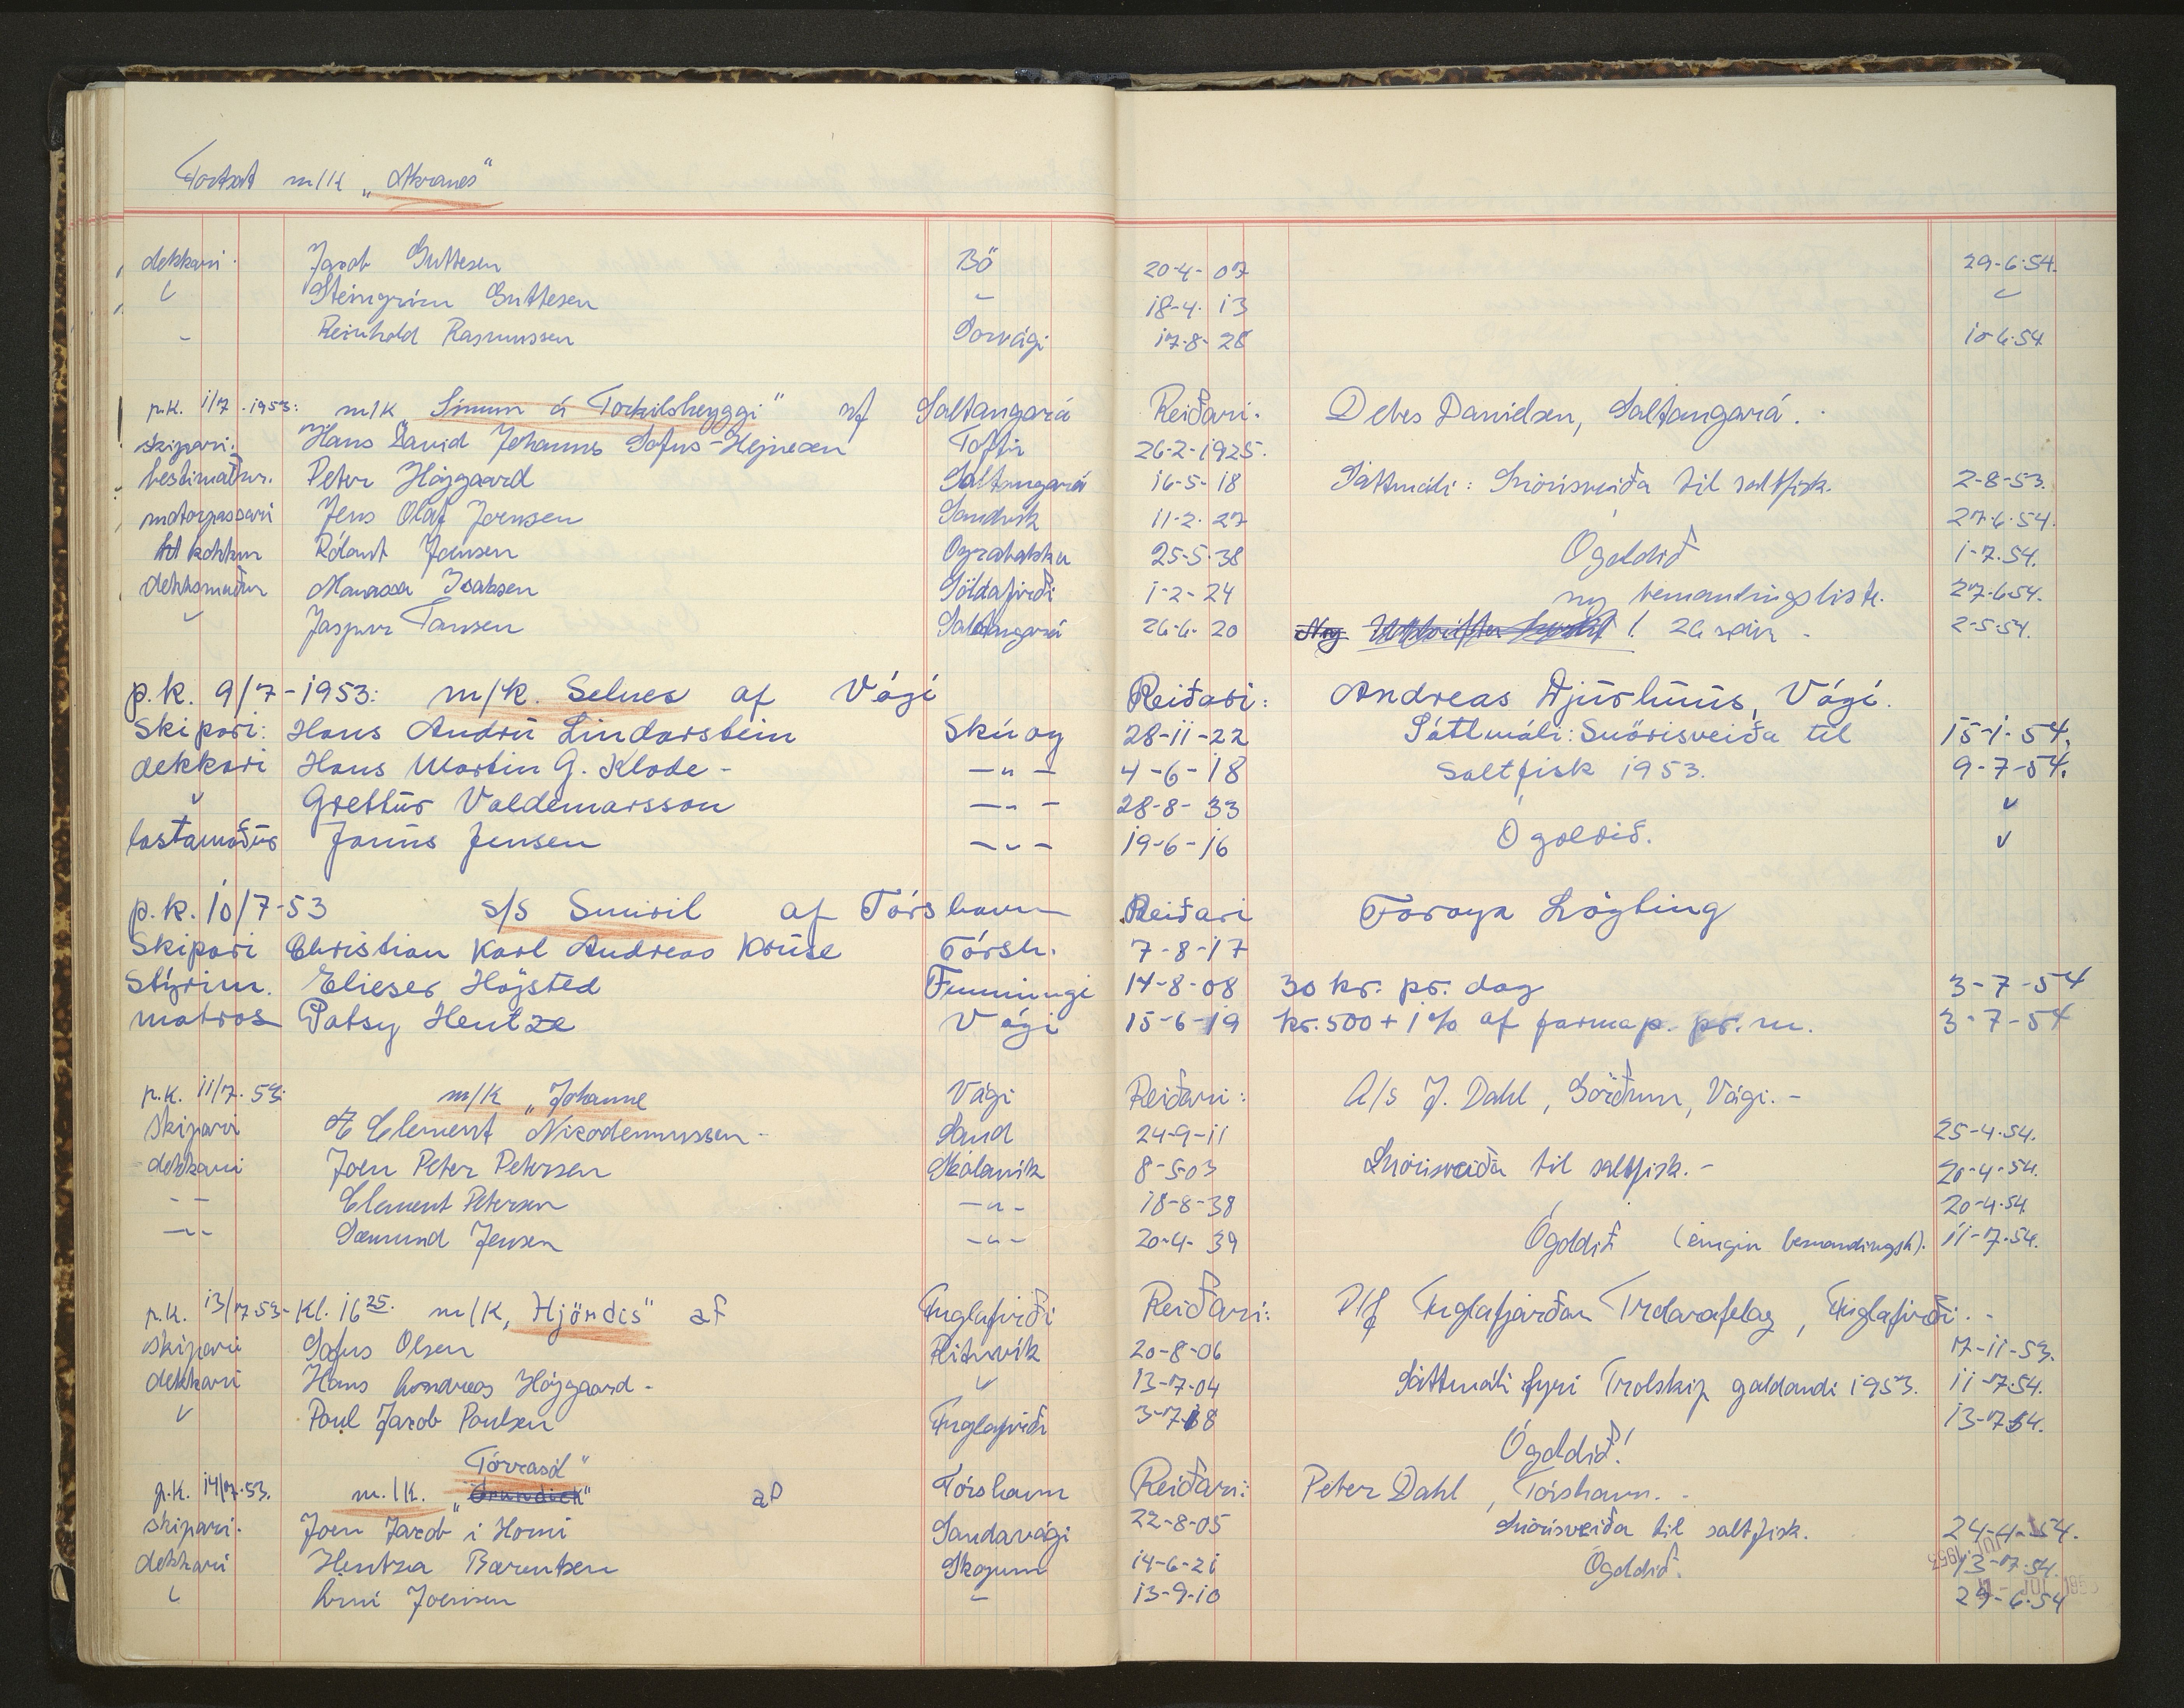 Fortsat m/k „Akranes"
dekkari. Jacob Guttesen Bö 20-4-07 29-6-54.
〃 Steingrim Guttesen - 18-4-13 〃
- Reinhold Rasmussen Sorvági 17-8-28 10-6-54
p.k. 1/7-1953: m/k Símun á Torkilsheyggi" af Saltangará Reiðari: Debes Danielsen, Saltangará.
skipari: Hans David Johannes Sofus-Hejnesen Toftir 26-2-1925.
bestimaður. Peter Højgaard Saltangará 16-5-18 Sáttmáli: Snörisveiða til saltfisk. 2-8-53.
motorpassari Jens Olaf Joensen Sandvík 11-2-27 27-6-54.
kokkur Rólant Jensen 25-5-38 Ógoldið 1-7-54.
dekksmaður Manasa Isaksen Söldafirði 1-2-24 ny bemandingsliste. 27-6-54.
〃 Jaspur Hansen Saltangará 26-6-20 2-5-54.
p.k. 9/7-1953: m/k. Selnes af Vági Reiðari: Andreas Djurhuus, Vági.
Skipari: Hans Andrú Lindarstein Skúoy 28-11-22 Sáttmáli: Snörisveiða til 15-1-54.
dekkari Hans Martin G. Klode - -〃- 4-6-18 Saltfisk 1953. 9-7-54.
〃 Grettur Valdemarsson -〃- 28-8-33 〃
lastamaður Janus Jensen -〃- 19-6-16 Ógoldið. 〃
p.k. 10/7-53 s/s Smiril af Tórshavn Reiðari Føroya Lögting
Skipari Christian Karl Andreas Kruse Tórsh. 7-8-17
Stýrim. Elieser Højsted Funningi 14-8-08 30 kr. pr. dag 3-7-54
matros Patsy Hentze Vági 15-6-19 kr. 500 + 1% af farmap. pr. m. 3-7-54
p.k. 11/7-53: m/k „Johanne Vági Reiðari: A/s J. Dahl, Görðum, Vági. -
Skipari Clement Nikodemussen - Sand 24-9-11 25-4-54.
dekkari Joen Peter Petersen Skálavík 8-5-03 Snörisveiða til saltfisk. - 20-4-54.
-- Clement Petersen -〃- 18-8-38 20-4-54.
-- Sæmund Jensen -〃- 20-4-39 Ógoldið (eingin bemandingsl). 11-7-54.
p.k. 13/7-53- Kl. 16 25. m/k, Hjördis" af Fuglafirði Reiðari: P/f Fuglafjarðar Trolarafelag, Fuglafirði. -
skipari Sofus Olsen Rituvík 20-8-06 17-11-53.
dekkari Hans Andreas Højgaard - 〃 13-7-04 Sáttmáli fyri Trolskip galdandi 1953. 11-7-54.
〃 Poul Jacob Poulsen Fuglafirði 3-7-18 13-7-54.
Ógoldið!
Tórrasá"
p.k. 14/7-53. m.k. „Grundick" af Tórshavn Reiðari: Peter Dahl, Tórshavn. -
skipari. Joen Jacob í Homi Sandavági 22-8-05 Snörisveiða til saltfisk. 24-4-54.
dekkari Hentza Barentsen Skopum 14-6-21 Ógoldið. 13-7-54.
〃 Arni Joensen - 13-9-10 29-6-54